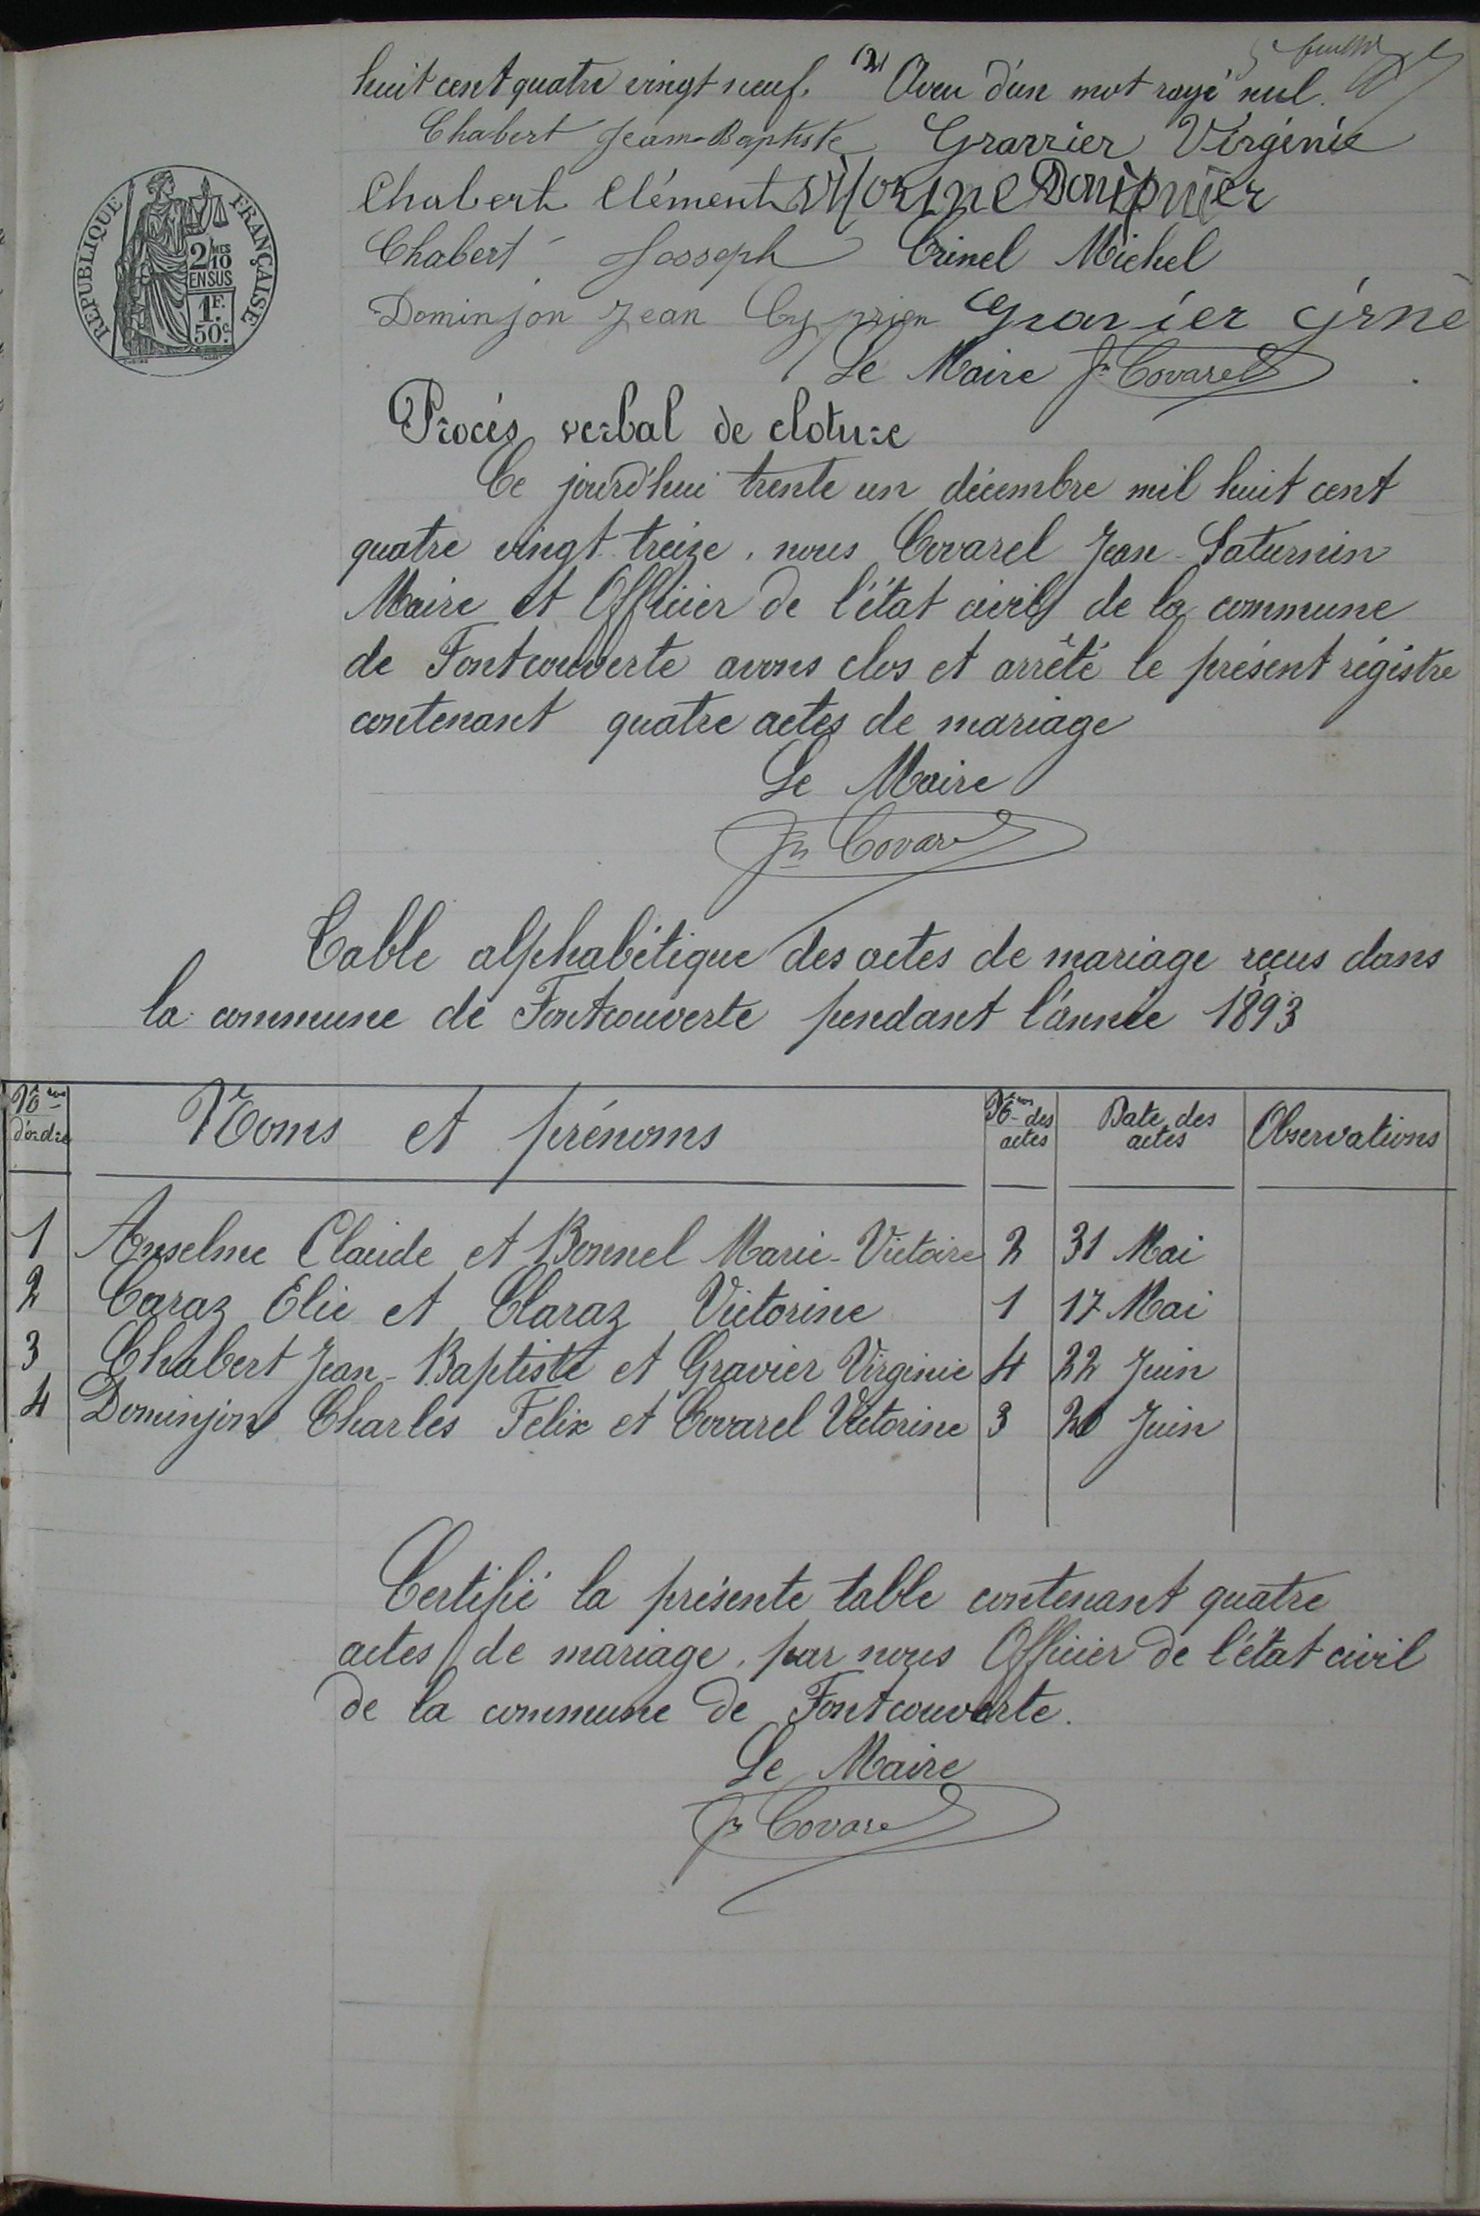 huit cent quatre vingt neuf. (2) Aveu d'un mot rayé nul.
Chabert Jean-Baptiste Gravier Virginie
Chabert Clément
Chabert Josseph Crinel Michel
Dominjon Jean Cyprien Gravier
Le Maire Jn Covarel
RÉPUBLIQUE FRANÇAISE
2/10MES
EN SUS
1F.
50c.
Procés verbal de cloture
Ce jourd'hui trente un décembre mil huit cent
quatre vingt treize, nous Covarel Jean-Saturnin
Maire et Officier de l'état civil de la commune
de Fontcouverte avons clos et arrêté le présent régistre
contenant quatre actes de mariage
Le Maire
Jn Covarel
Table alphabétique des actes de mariage reçus dans
la commune de Fontcouverte pendant l'année 1893
Nos d'ordre Noms et prénoms Nos des actes Date des actes Observations
1 Anselme Claude et Bonnel Marie-Victoire 2 31 Mai
2 Caraz Elie et Claraz Victorine 1 17 Mai
3 Chabert Jean-Baptiste et Gravier Virginie 4 22 Juin
4 Dominjon Charles Felix et Covarel Victorine 3 20 Juin
Certifié la présente table contenant quatre
actes de mariage, par nous Officier de l'état civil
de la commune de Fontcouverte.
Le Maire
Jn Covarel